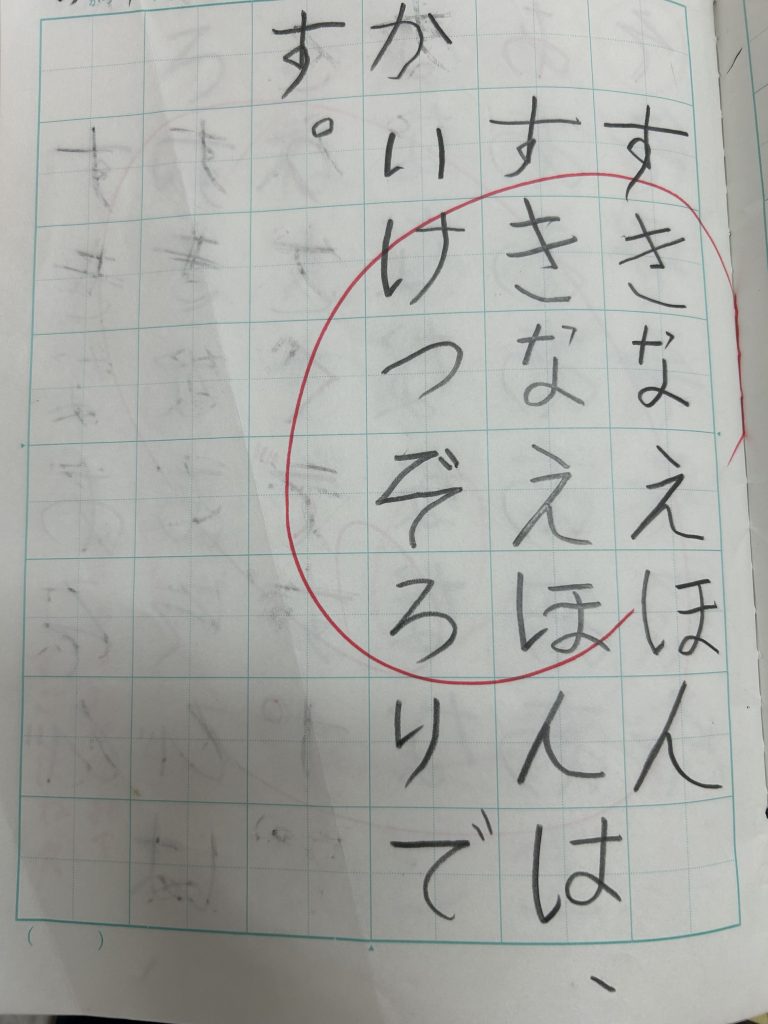 すきなえほん
すきなえほんは、
かいけつぞろりで
す。